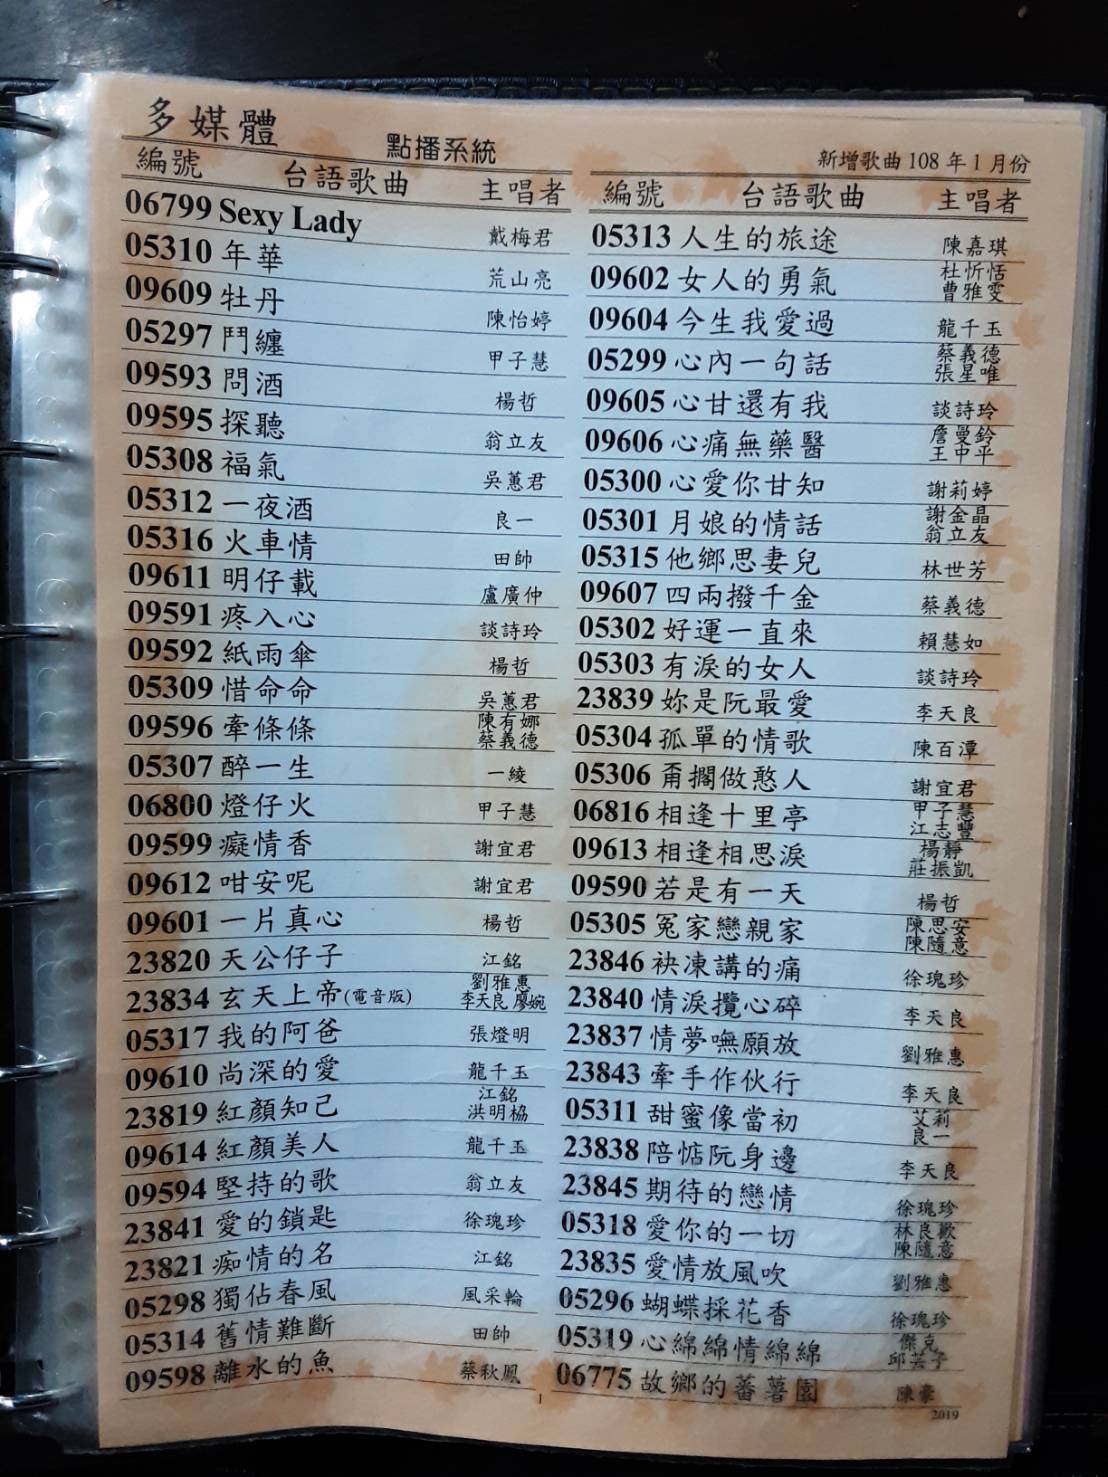 多媒體 點播系統 新增歌曲 108 年 1 月份
編號 台語歌曲 主唱者
06799 Sexy Lady 戴梅君
05310 年華 荒山亮
09609 牡丹 陳怡婷
05297 鬥纏 甲子慧
09593 問酒 楊哲
09595 探聽 翁立友
05308 福氣 吳蕙君
05312 一夜酒 良一
05316 火車情 田帥
09611 明仔載 盧廣仲
09591 疼入心 談詩玲
09592 紙雨傘 楊哲
05309 惜命命 吳蕙君
09596 牽條條 陳有娜 蔡義德
05307 醉一生 一綾
06800 燈仔火 甲子慧
09599 癡情香 謝宜君
09612 咁安呢 謝宜君
09601 一片真心 楊哲
23820 天公仔子 江銘
23834 玄天上帝(電音版) 劉雅惠 李天良 廖婉
05317 我的阿爸 張燈明
09610 尚深的愛 龍千玉
23819 紅顏知己 江銘 洪明楊
09614 紅顏美人 龍千玉
09594 堅持的歌 翁立友
23841 愛的鎖匙 徐瑰珍
23821 痴情的名 江銘
05298 獨佔春風 風采輪
05314 舊情難斷 田帥
09598 離水的魚 蔡秋鳳
編號 台語歌曲 主唱者
05313 人生的旅途 陳嘉琪
09602 女人的勇氣 杜忻恬 曹雅雯
09604 今生我愛過 龍千玉
05299 心內一句話 蔡義德 張星唯
09605 心甘還有我 談詩玲
09606 心痛無藥醫 詹曼鈴 王中平
05300 心愛你甘知 謝莉婷
05301 月娘的情話 謝金晶 翁立友
05315 他鄉思妻兒 林世芳
09607 四兩撥千金 蔡義德
05302 好運一直來 賴慧如
05303 有淚的女人 談詩玲
23839 妳是阮最愛 李天良
05304 孤單的情歌 陳百潭
05306 甭擱做憨人 謝宜君
06816 相逢十里亭 甲子慧 江志豐
09613 相逢相思淚 楊靜 莊振凱
09590 若是有一天 楊哲
05305 冤家戀親家 陳思安 陳隨意
23846 袂凍講的痛 徐瑰珍
23840 情淚攪心碎 李天良
23837 情夢嘸願放 劉雅惠
23843 牽手作伙行 李天良
05311 甜蜜像當初 艾莉 良一
23838 陪惦阮身邊 李天良
23845 期待的戀情 徐瑰珍
05318 愛你的一切 林良歐 陳隨意
23835 愛情放風吹 劉雅惠
05296 蝴蝶採花香 徐瑰珍
05319 心綿綿情綿綿 傑克 邱芸子
06775 故鄉的蕃薯園 陳豪
1
2019